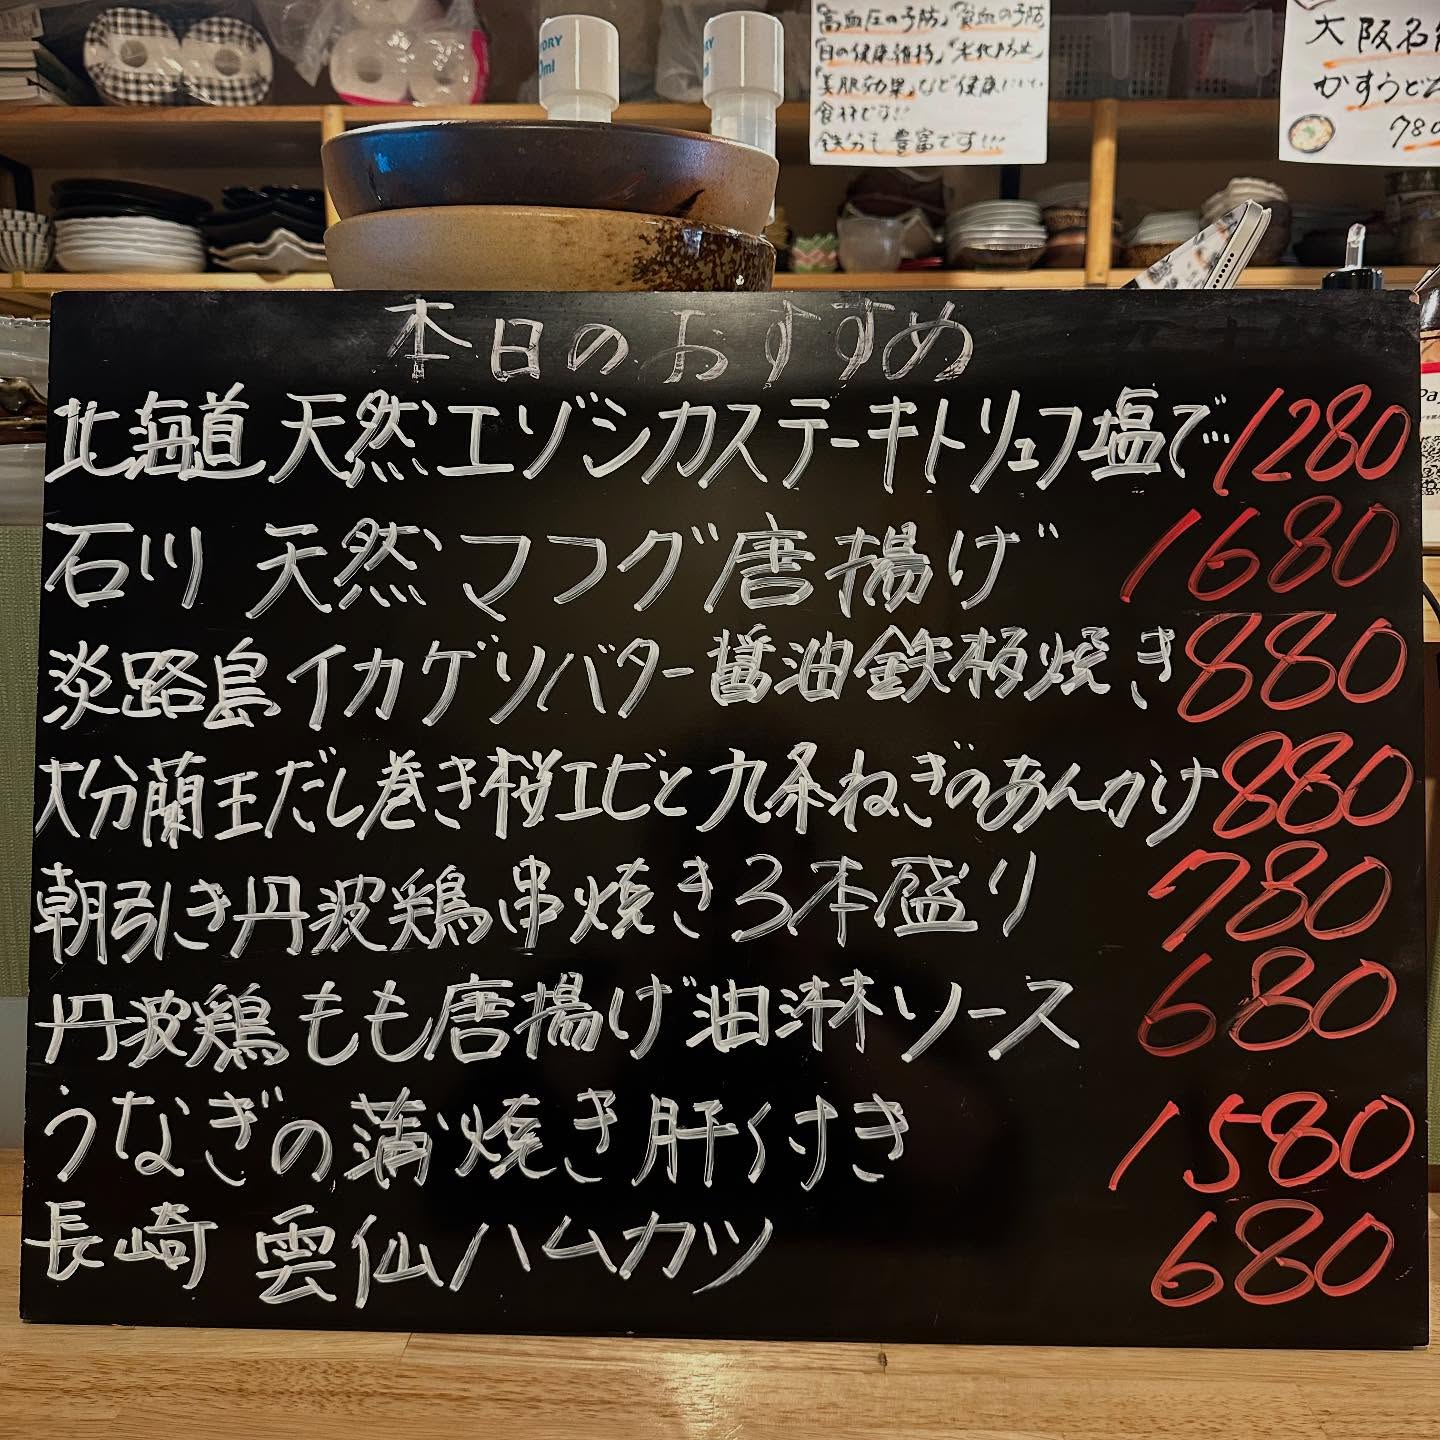 「高血圧の予防」「貧血の予防」
「目の健康維持」「老化防止」
「美肌効果」など健康にいい
食材です!!
鉄分も豊富です!!!
大阪名
かすうどん
780
本日のおすすめ
北海道 天然エゾシカステーキトリュフ塩で… 1280
石川 天然マフグ唐揚げ 1680
淡路島イカゲソバター醤油鉄板焼き 880
大分蘭王だし巻き桜エビと九条ねぎのあんかけ 880
朝引き丹波鶏串焼き3本盛り 780
丹波鶏もも唐揚げ油淋ソース 680
うなぎの蒲焼き肝付き 1580
長崎 雲仙ハムカツ 680